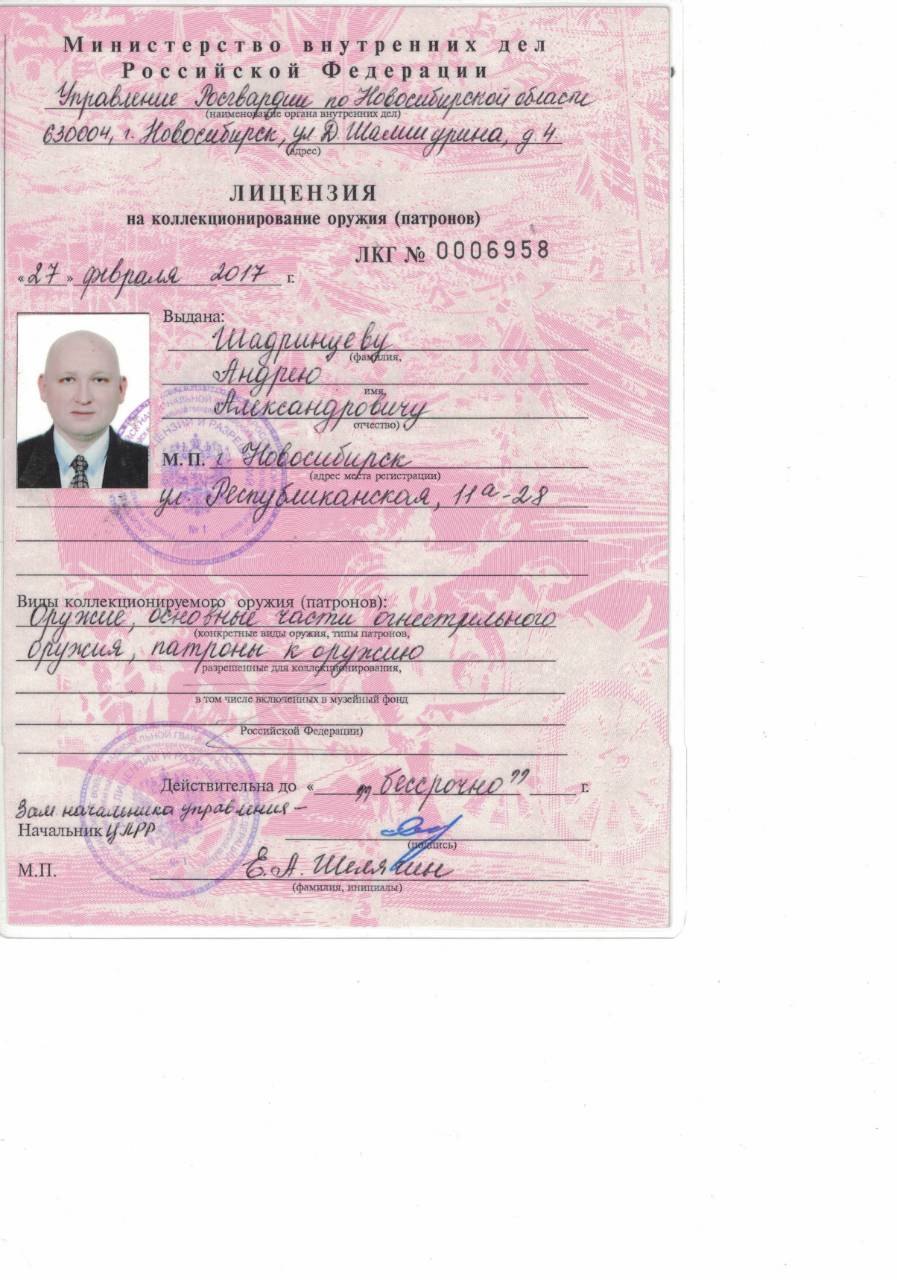 Министерство внутренних дел
Российской Федерации
Управление Росгвардии по Новосибирской области
(наименование органа внутренних дел)
630004, г. Новосибирск, ул. Д. Шамшурина, д. 4.
(адрес)
ЛИЦЕНЗИЯ
на коллекционирование оружия (патронов)
ЛКГ № 0006958
«27» февраля 2017 г.
Выдана:
Шадринцеву
(фамилия,
Андрею
имя,
Александровичу
отчество)
М. П. г. Новосибирск
(адрес места регистрации)
ул. Республиканская, 11а-28
Виды коллекционируемого оружия (патронов):
Оружие, основные части огнестрельного
(конкретные виды оружия, типы патронов,
оружия, патроны к оружию
разрешенные для коллекционирования,
в том числе включенных в музейный фонд
Российской Федерации)
Действительна до « „бессрочно” г.
Зам начальника управления –
Начальник ЦЛРР
(подпись)
М.П. Е. А. Шелякин
(фамилия, инициалы)